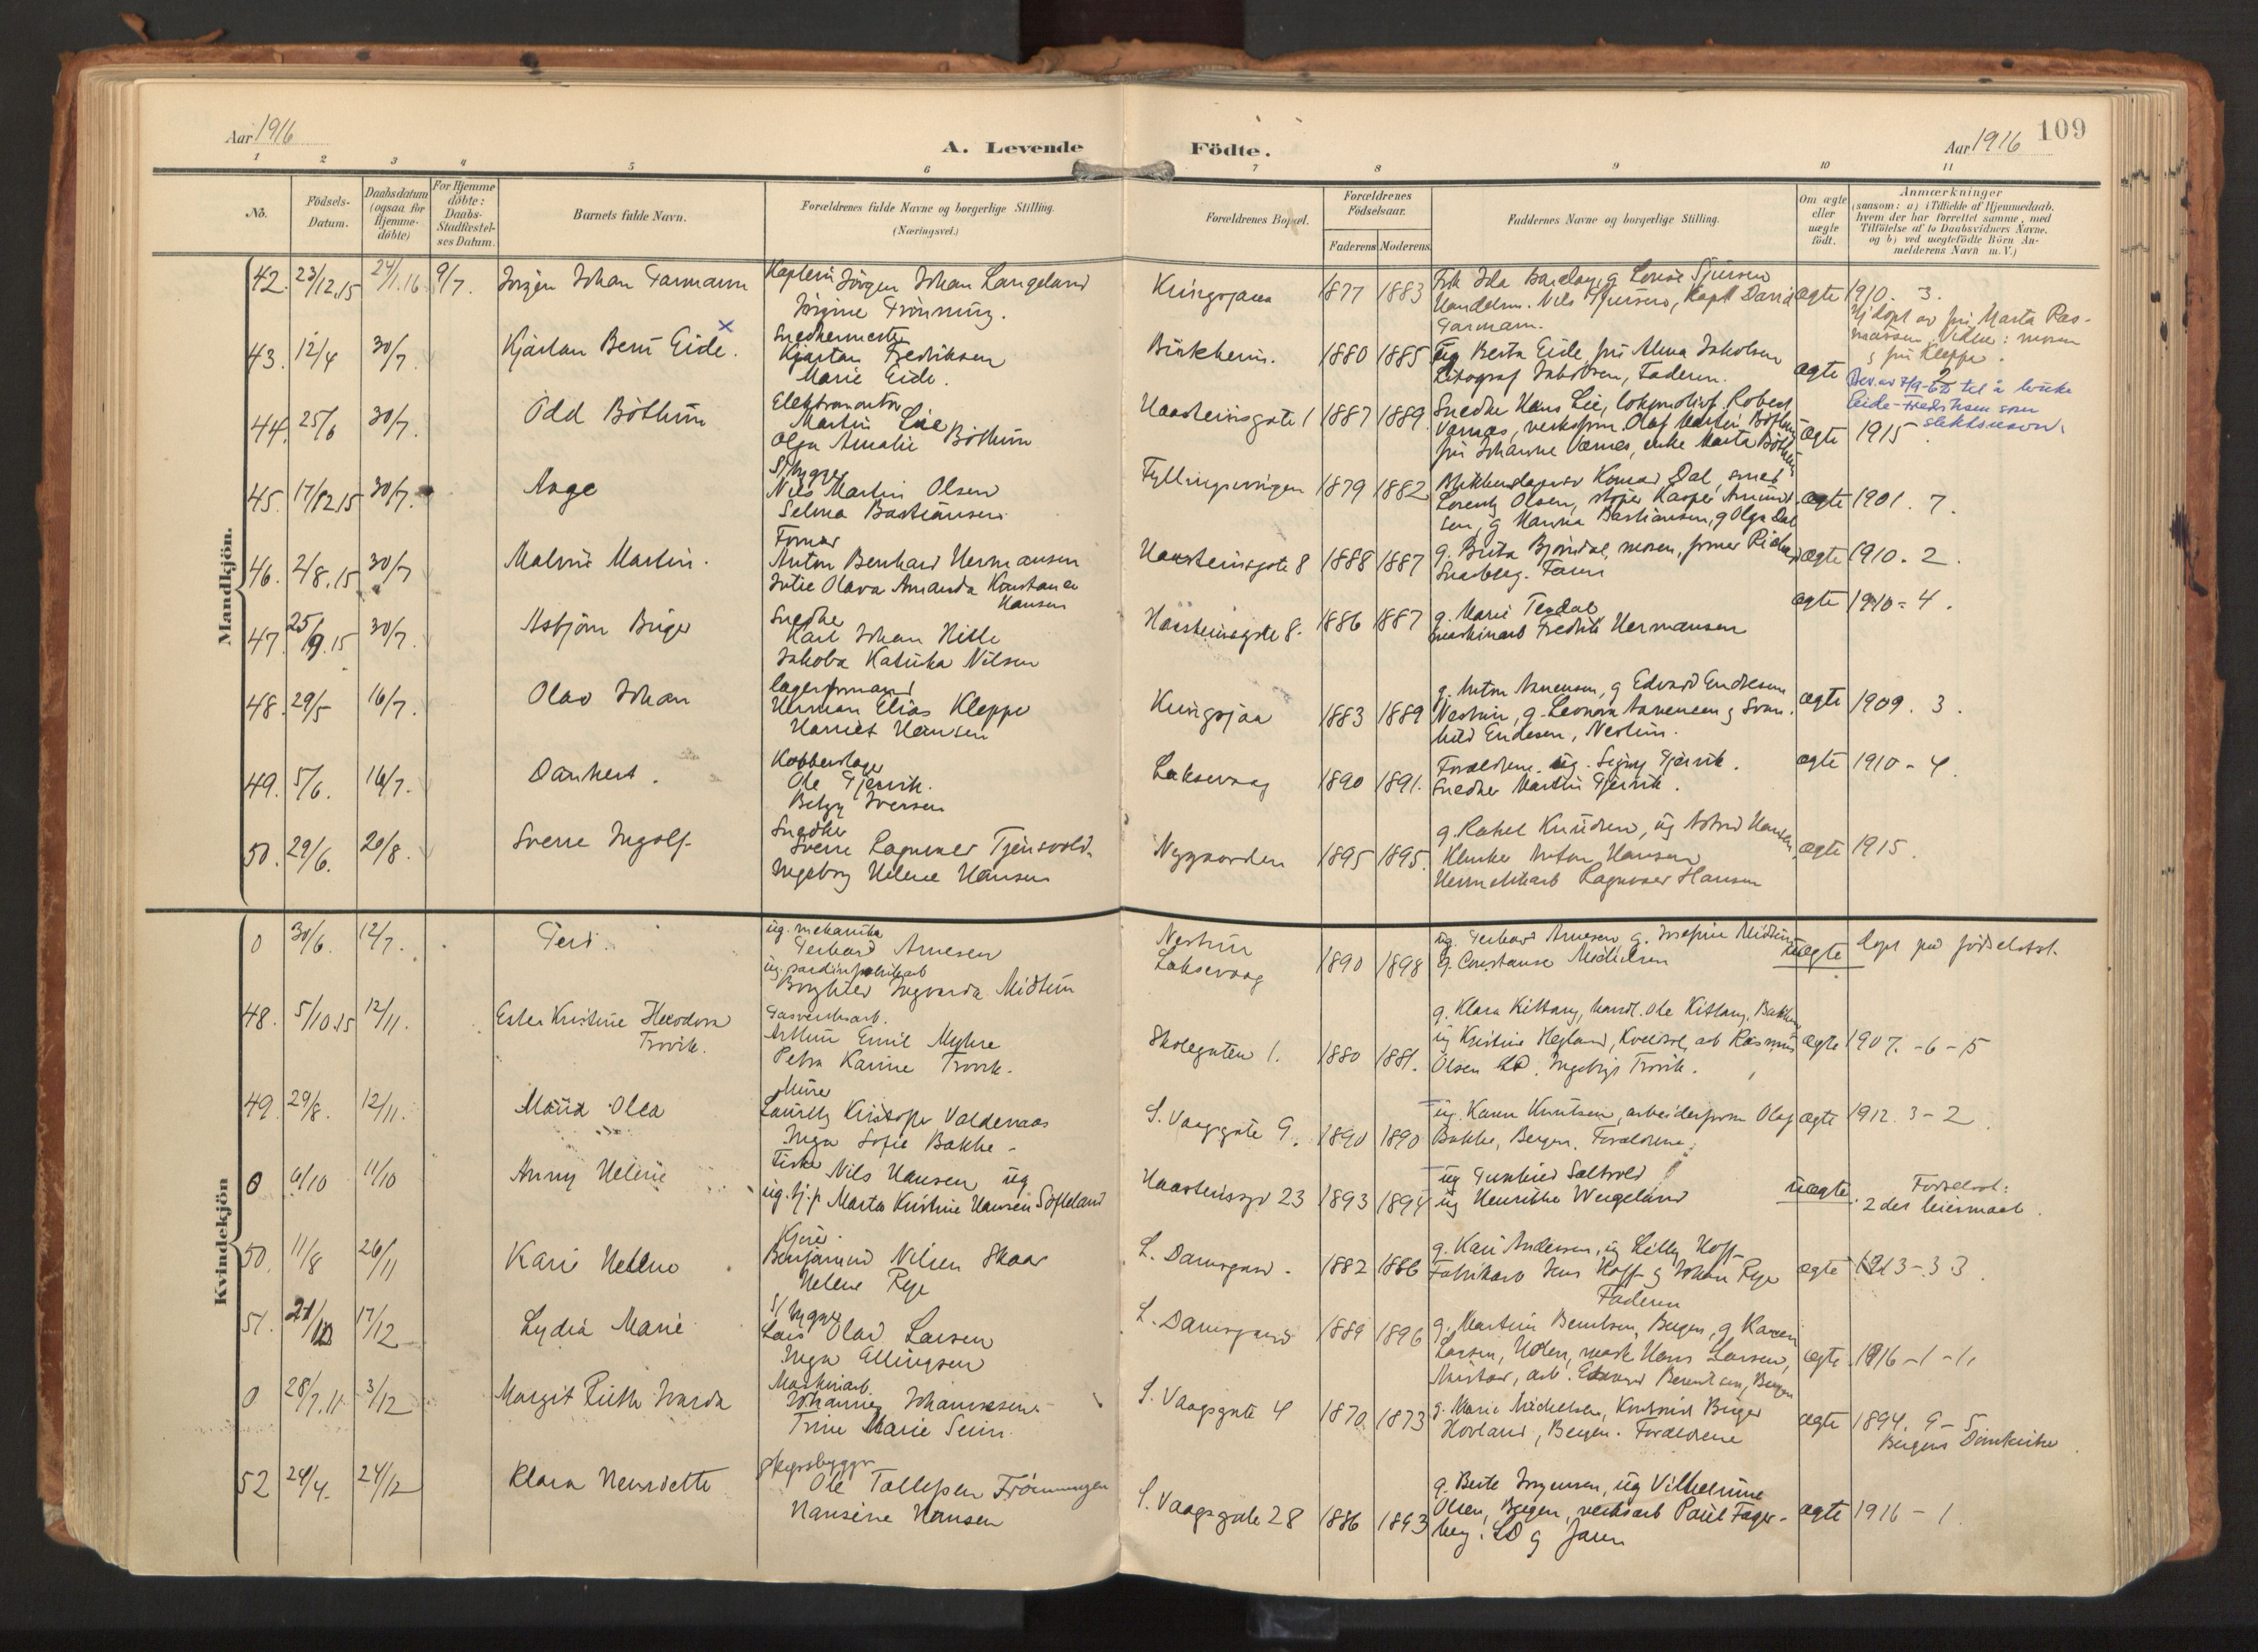 Aar 1916
A. Levende
Födte.
Aar 1916
109
1 2 3 4 5 6 7 8 9 10 11
No.
Födsels-
Datum.
Daabsdatum
(ogsaa for
Hjemme-
döbte)
For Hjemme
döbte:
Daabs-
Stadfæstel-
ses Datum.
Barnets fulde Navn.
Forældrenes fulde Navne og borgerlige Stilling.
(Næringsvei.)
Forældrenes Bopæl.
Forældrenes
Födselsaar.
Faderens Moderens
Faddernes Navne og borgerlige Stilling.
Om ægte
eller
uægte
födt.
Anmærkninger
(saasom: a) i Tilfælde af Hjemmedaab,
hvem der har forrettet samme, med
Tilföielse af to Daabsvidners Navne.
og b) ved uægtefödte Börn An-
melderens Navn m.V.)
Mandkjön.
42. 23/12.15 24/1.16 9/7. Jörgen Johan Farmann
Kaptein Jörgen Johan Langeland
Jörgine Frönning.
1877 1883
Handelsm. Nils Sjursen, Kapt David
Farmann.
ægte 1910. 3.
Hj.döpt av fru Marta Ras-
mussen. Vidne: moren
g fru Kleppe.
43. 12/4 30/7. Kjartan Bern Eide.
Snedkermester
Kjartan Fredriksen
Marie Eide.
1880 1885
ug Berta Eide, fru Alma Jakobsen
Litograf Jakobsen, Faderen.
ægte 2
Eide-Fredriksen som
slektsnavn.
44. 25/6 30/7. Odd Böthun
Elektromontör
Martin Lie
Olga Amalie Böthun
Haasteinsgate 1 1887 1889.
Snedker Hans Lie, lokomotivf. Robert
Værnes, verksform Olaf Martin Böthun
fru Johanne Værnes, enke Marta Böthun
ægte 1915
45. 17/12.15 30/7. Aage
S/bygger
Nils Martin Olsen
Selma Bastiansen
Fyllingsveigen 1879 1882
Lorentz Olsen, støper Kasper Amund
sen, g Hanna Bastiansen, g Olga Dal
ægte 1901. 7.
46. 2/8.15 30/7 Malvin Martin.
Former
Anton Bernhard Hermansen
Julie Olava Amanda Konstance
Hansen
Haasteinsgate 8 1888 1887
g. Berta Bjørndal, moren, former Rickard
Snarberg. Faren
ægte 1910. 2.
47. 25/9.15 30/7. Asbjörn Birger
Snedker
Karl Johan Hille
Jakoba Katinka Nilsen
Haasteinsgate 8. 1886 1887
g. Marie Teudal
maskinarb Fredrik Hermansen
ægte 1910 = 4.
48. 29/5 16/7. Olav Johan
lagerformand
Herman Elias Kleppe
Harriet Hansen
Kringsjaa 1883 1889
g. Anton Arnesen, g Edvard Endresen
ægte 1909. 3.
49. 5/6. 16/7. Dankert.
Kobberslager
Ole Gjervik.
Betzy Iversen
Laksevaag 1890 1891.
Forældrene. ug. Signy Gjervik.
Snedker Martin Gjervik.
ægte 1910 - 4.
50. 29/6. 20/8. Sverre Ingolf
Snedker
Sverre Ragnvald Tjensvold.
Ingeborg Helene Hansen
Nygaarden 1895 1895.
g. Rakel Knudsen, ug Astrid Hansen
Anton Hansen
Ragnvald Hansen
ægte 1915.
Kvindekjön
0 30/6. 12/7. Gerd.
ug. mekaniker
Gerhard Arnesen
ug. sardinfabrikarb
Borghild Ingvarda Midtun
Nestun
Laksevaag 1890 1898
ug. Gerhard Arnesen g. Josefine Midtun
g. Constanse Mikkelsen
uægte döpt paa födselsst.
48. 5/10.15 12/11. Ester Kristine Heodora
Trovik.
Gasverksarb.
Arthur Emil Myhre
Petra Karine Trovik.
Skolegaten 1. 1880 1881.
g. Klara Kittang, handl. Ole Kittang, Bakken
ug Kristine Hegland, Kveldsol, arb Rasmus
Olsen LD. Ingebrigt Trovik.
ægte 1907. - 6 - 15
49. 29/8. 12/11. Maud Olea
Murer
Lauritz Kristofer Valdernaas
Inga Sofie Bakke -
S. Vaagsgate 9. 1890 1890
ug. Karen Knutsen, arbeidsform Olaf
Bakke, Bergen. Forældrene.
ægte 1912. 3 - 2.
0 6/10 11/10 Anny Helene
Fisker Nils Hansen ug
ug. tj.p Marta Kristine Hansen Softeland
Haasteinsgt 23 1893 1894
ug Gunhild Saltvold
ug Henrikke Wergeland
uægte. Fødselsst:
2 det leiermaal.
50. 11/8 26/11 Kari Helene
Kjører.
Benjamin Nilsen Skaar
Helene Rye
L. Damsgaard. 1882 1886
g. Kari Andersen, ug Lilly Hoff-
Fabrikarb Jens Hoff g Johan Rye
Faderen
ægte 1913 - 3 3.
51. 17/12 Lydia Marie
S/bygger
Lars Olav Larsen
Inga Ellingsen
L. Damsgaard 1889 1896
g. Martine Berntsen, Bergen, g Karen
Larsen, Holen, mask Hans Larsen,
arb. Edvard Berentsen, Bergen
ægte 1916 - 1 - 1.
0 28/7.11 3/12 Margit Ruth Ivarda
Maskinarb.
Johannes Johannesen
Trine Marie Seim
S. Vaagsgate 4 1870 1873
g. Marie Mikkelsen, Birger
Hovland, Bergen. Forældrene
ægte 1894. 9 - 5
Bergens Domkirke.
52 24/4. 24/12 Klara Henriette
skipsbygger
Ole Tollefsen Frönningen
Hansine Hansen
S. Vaagsgate 28 1886 1893
g. Berte Jørgensen, ug Vilhelmine
Olsen, Bergen, verksarb Paul Fager-
berg. LD g faren
ægte 1916 - 1